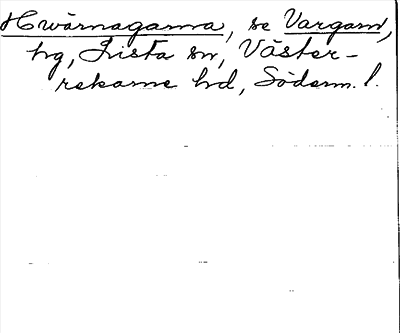 Hwärnaganna, se Vargarn,
hg, Lista sn, Väster-
rekarne hd, Söderm. l.